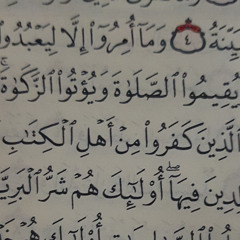 يِّنَةُ ٤ وَمَآ أُمِرُوٓا۟ إِلَّا لِيَعْبُدُوا۟
يُقِيمُوا۟ ٱلصَّلَوٰةَ وَيُؤْتُوا۟ ٱلزَّكَوٰةَ ۚ
ٱلَّذِينَ كَفَرُوا۟ مِنْ أَهْلِ ٱلْكِتَٰبِ
لِدِينَ فِيهَآ ۚ أُو۟لَٰٓئِكَ هُمْ شَرُّ ٱلْبَرِيَّ
أُو۟لَٰٓئِكَ هُمْ